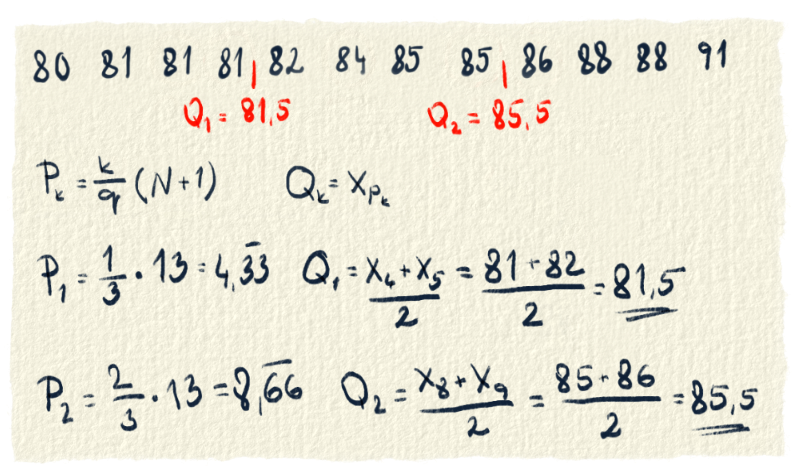 80 81 81 81 | 82 84 85 85 | 86 88 88 91
Q₁ = 81,5 Q₂ = 85,5
Pₖ = k/q (N+1) Qₖ = x_Pₖ
P₁ = 1/3 · 13 = 4,3̅3̅ Q₁ = (x₄ + x₅)/2 = (81 + 82)/2 = 81,5
P₂ = 2/3 · 13 = 8,6̅6̅ Q₂ = (x₈ + x₉)/2 = (85 + 86)/2 = 85,5